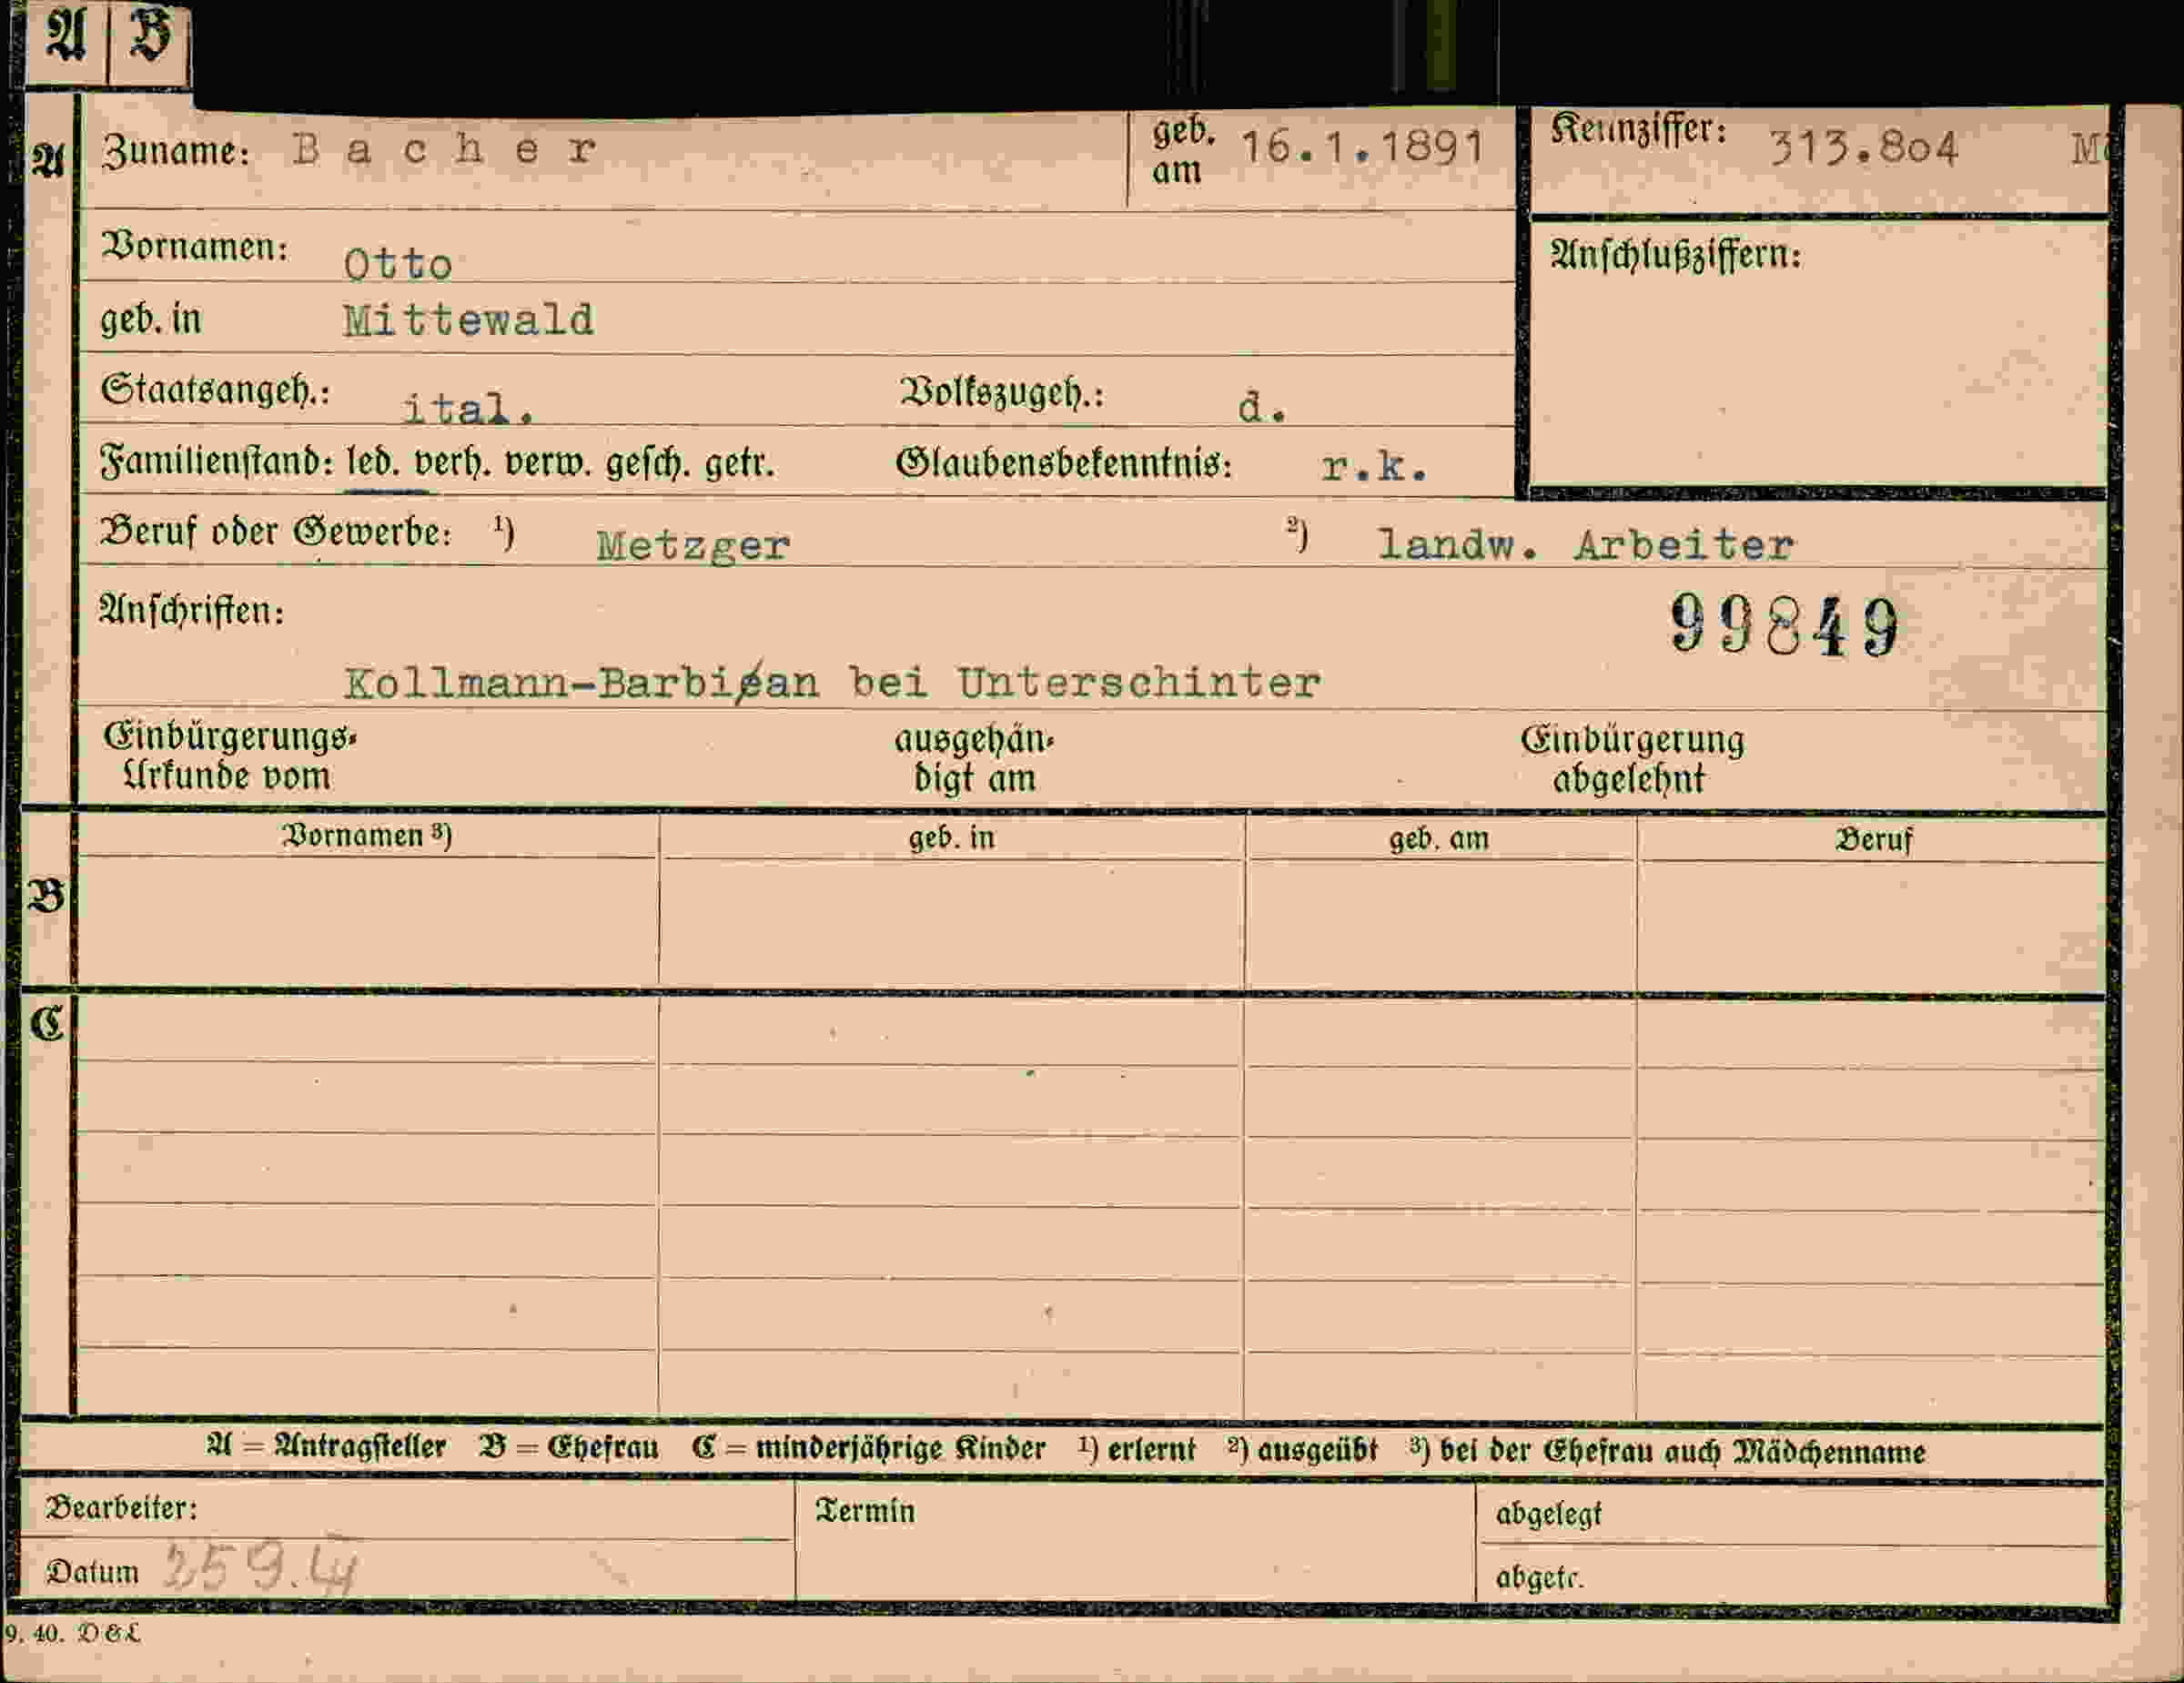 A B
A Zuname: Bacher geb. am 16.1.1891 Kennziffer: 313.804
Vornamen: Otto Anschlußziffern:
geb. in Mittewald
Staatsangeh.: ital. Volkszugeh.: d.
Familienstand: led. verh. verw. gesch. getr. Glaubensbekenntnis: r.k.
Beruf oder Gewerbe: ¹) Metzger ²) landw. Arbeiter
Anschriften: 99849
Kollmann-Barbian bei Unterschinter
Einbürgerungs- ausgehän- Einbürgerung
Urkunde vom digt am abgelehnt
Vornamen ³) geb. in geb. am Beruf
B
C
A = Antragsteller B = Ehefrau C = minderjährige Kinder ¹) erlernt ²) ausgeübt ³) bei der Ehefrau auch Mädchenname
Bearbeiter: Termin abgelegt
Datum abgetr.
9. 40. D & L